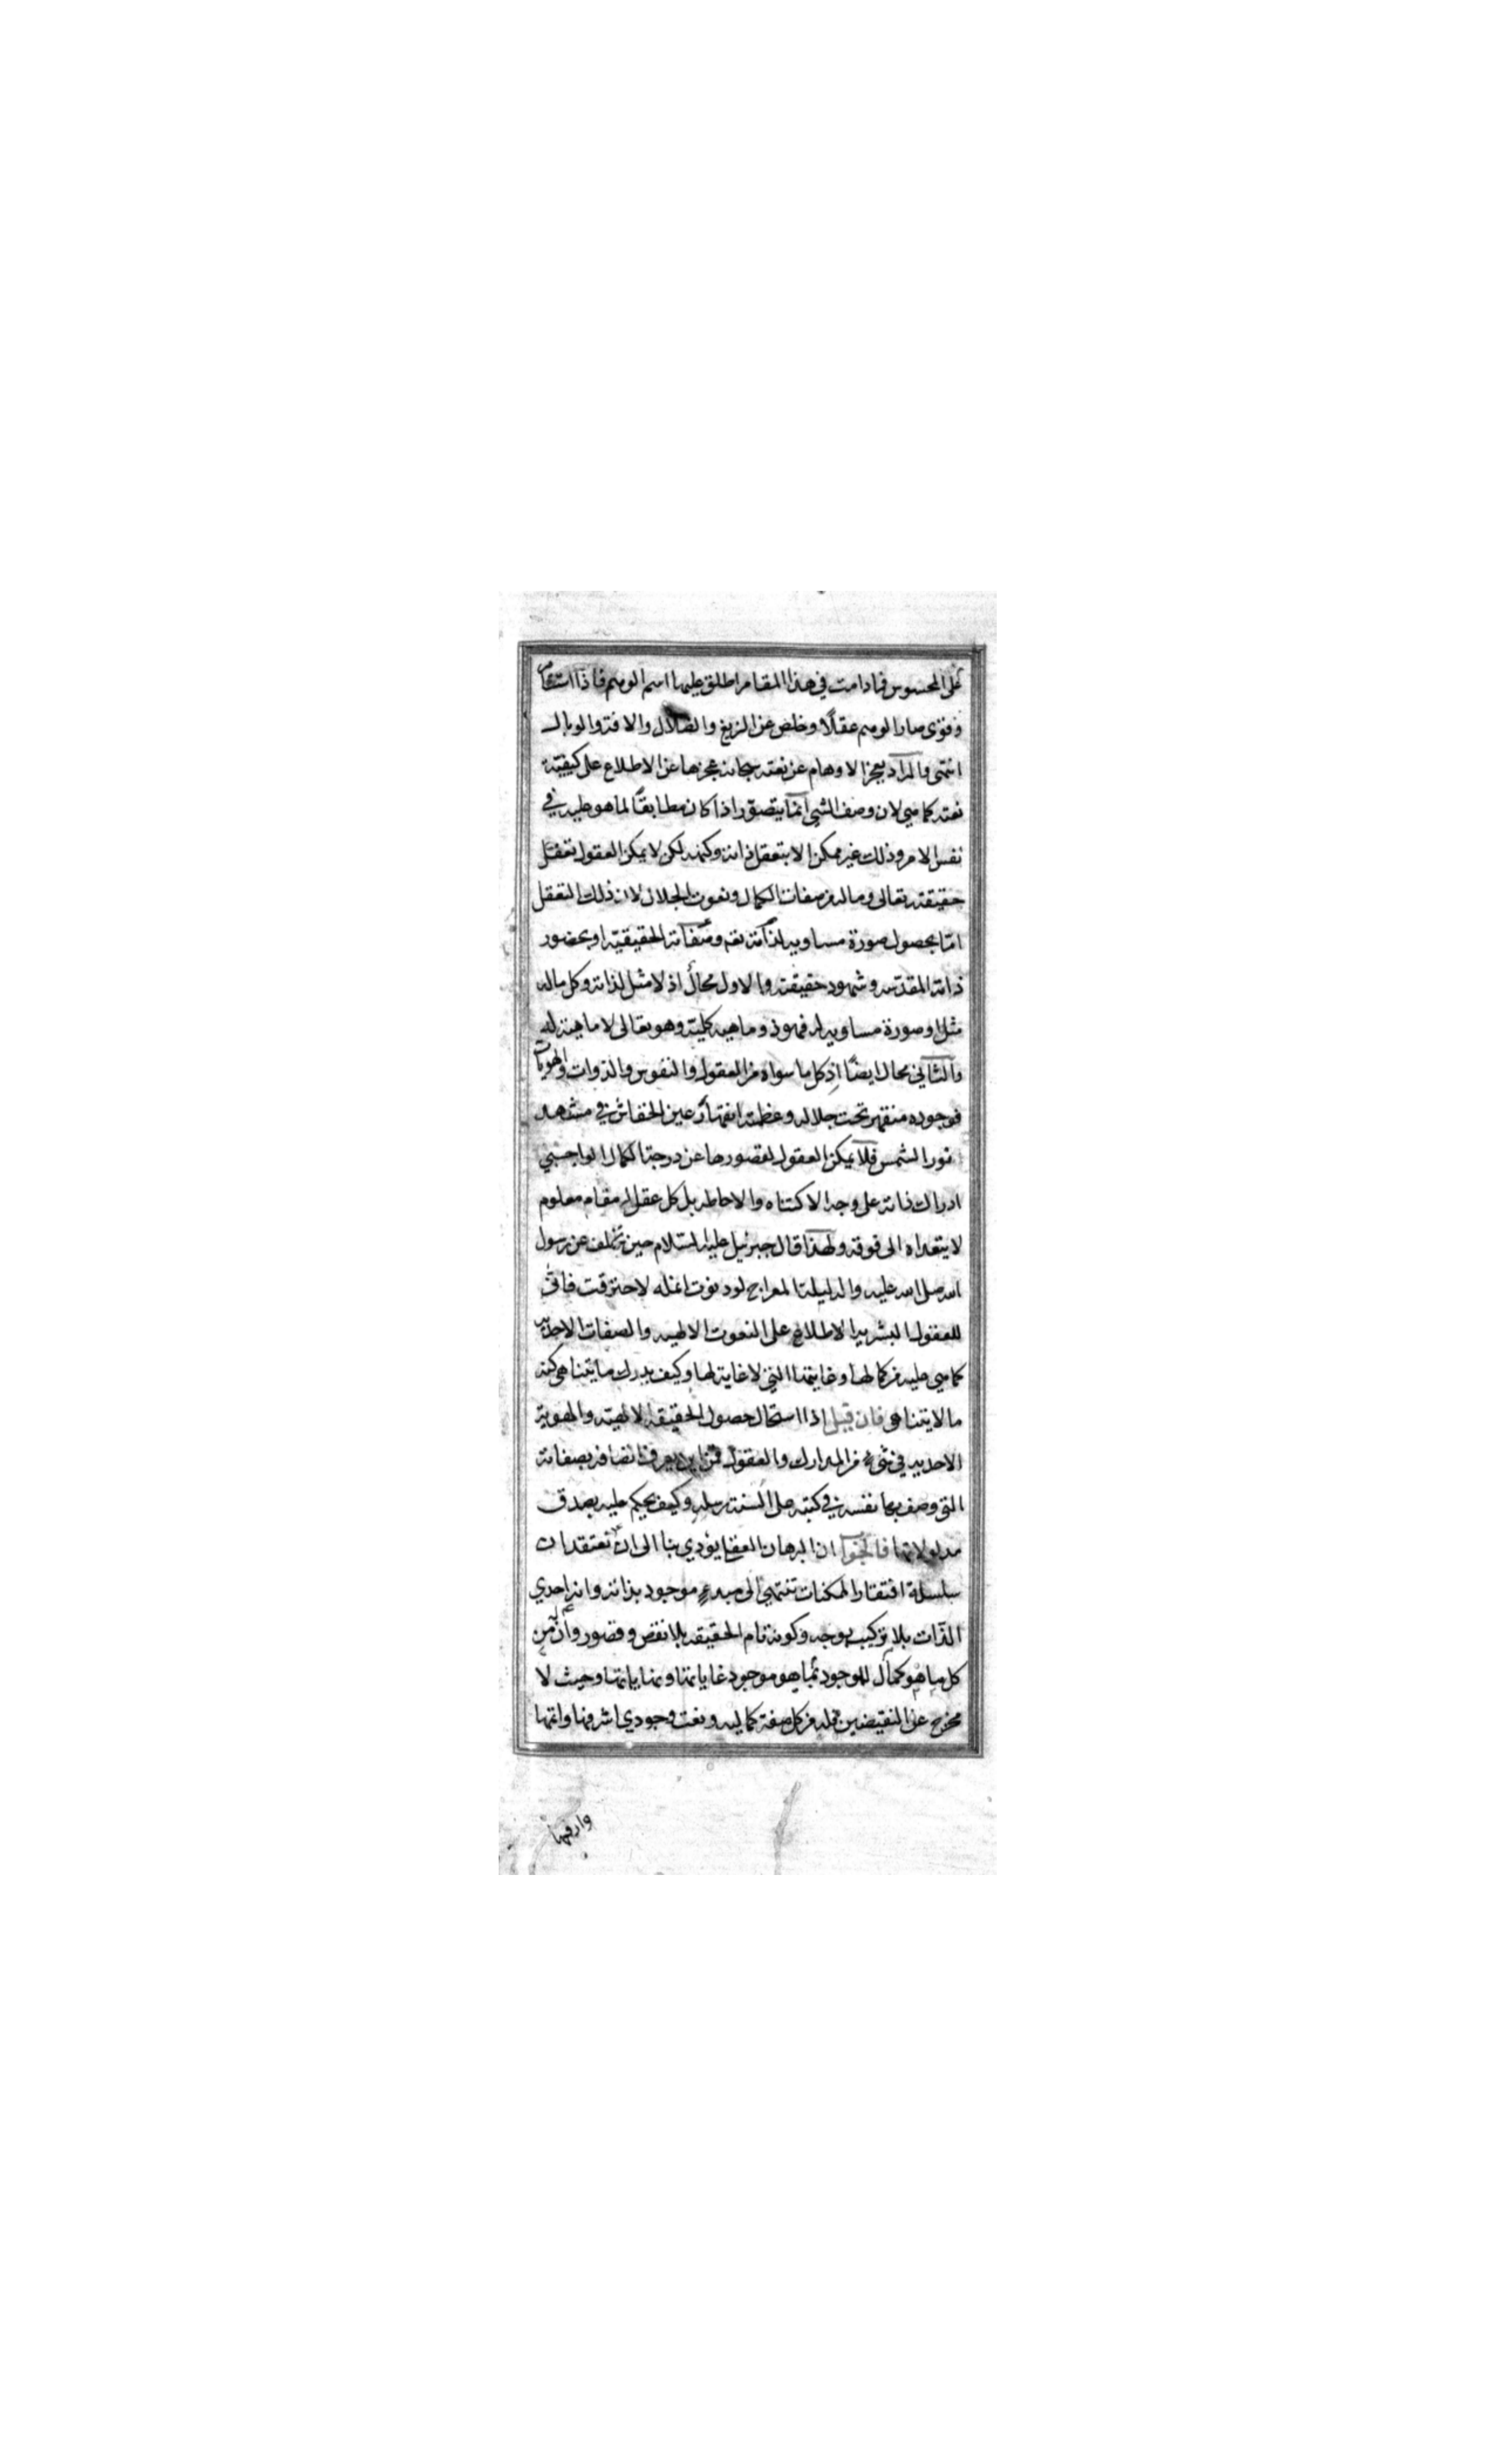 على المحسوس فمادامت في هذا المقام اطلق عليها اسم الوهم فاذا استقام
وقوى صار الوهم عقلًا وخلص عن الزيغ والضلال والافة والوبال
انتهى والمراد بعجز الاوهام عن نعته سبحانه عجزها عن الاطلاع على كيفية
نعته كما هي لان وصف الشي انما يتصوّر اذا كان مطابقًا لما هو عليه في
نفس الامر وذلك غير ممكن الا بتعقل ذاته وكنهه لكن لا يمكن العقول تعقل
حقيقته تعالى وماله من صفات الكمال ونعوت الجلال لان ذلك التعقل
امّا بحصول صورة مساويه لذاته تعه وصفاته الحقيقيّه او بحضور
ذاته المقدّسه وشهود حقيقته والاول محالٌ اذ لا مثل لذاته وكل ماله
مثل او صورة مساويه له فهو ذو ماهيه كلية وهو تعالى لا ماهية له
والثاني محال ايضًا اذ كل ما سواه من العقول والنفوس والذوات والهويات
فوجوده منقهر تحت جلاله وعظمته انقهار عين الخفاش في مشهد
نور الشمس فلا يمكن العقول لقصورها عن درجة الكمال الواجبي
ادراك ذاته على وجه الاكتناه والاحاطه بل كل عقل له مقام معلوم
لا يتعداه الى فوقه ولهذا قال جبرئيل عليه السّلام حين تخلف عن رسول
الله صلى الله عليه واله ليلة المعراج لو دنوت انملة لاحترقت فانّى
للعقول البشريه الاطلاع على النعوت الالهيه والصفات الاحديه
كما هي عليه من كمالها وغايتها التي لا غاية لها وكيف يدرك ما يتناهى كنه
ما لا يتناهى فان قيل اذا استحال حصول الحقيقه الالهيّه والهوية
الاحديه في شيء من المدارك والعقول فمن اين يعرف اتصافه بصفاته
التي وصف بها نفسه في كتبه على السنة رسله وكيف يحكم عليه بصدق
مدلولاتها فالجواب ان البرهان العقلي يؤدي بنا الى ان نعتقد ان
سلسلة افتقار الممكنات تنتهي الى مبدءٍ موجود بذاته وانه احدي
الذّات بلا تركيب بوجه وكونه تام الحقيقه بلا نقص وقصور وان له من
كل ما هو كمال للموجود بما هو موجود غاياتها ونهاياتها وحيث لا
مخرج عن النقيضين فله من كل صفة كماليه ونعت وجودي اشرفها واتمها
وارفعها